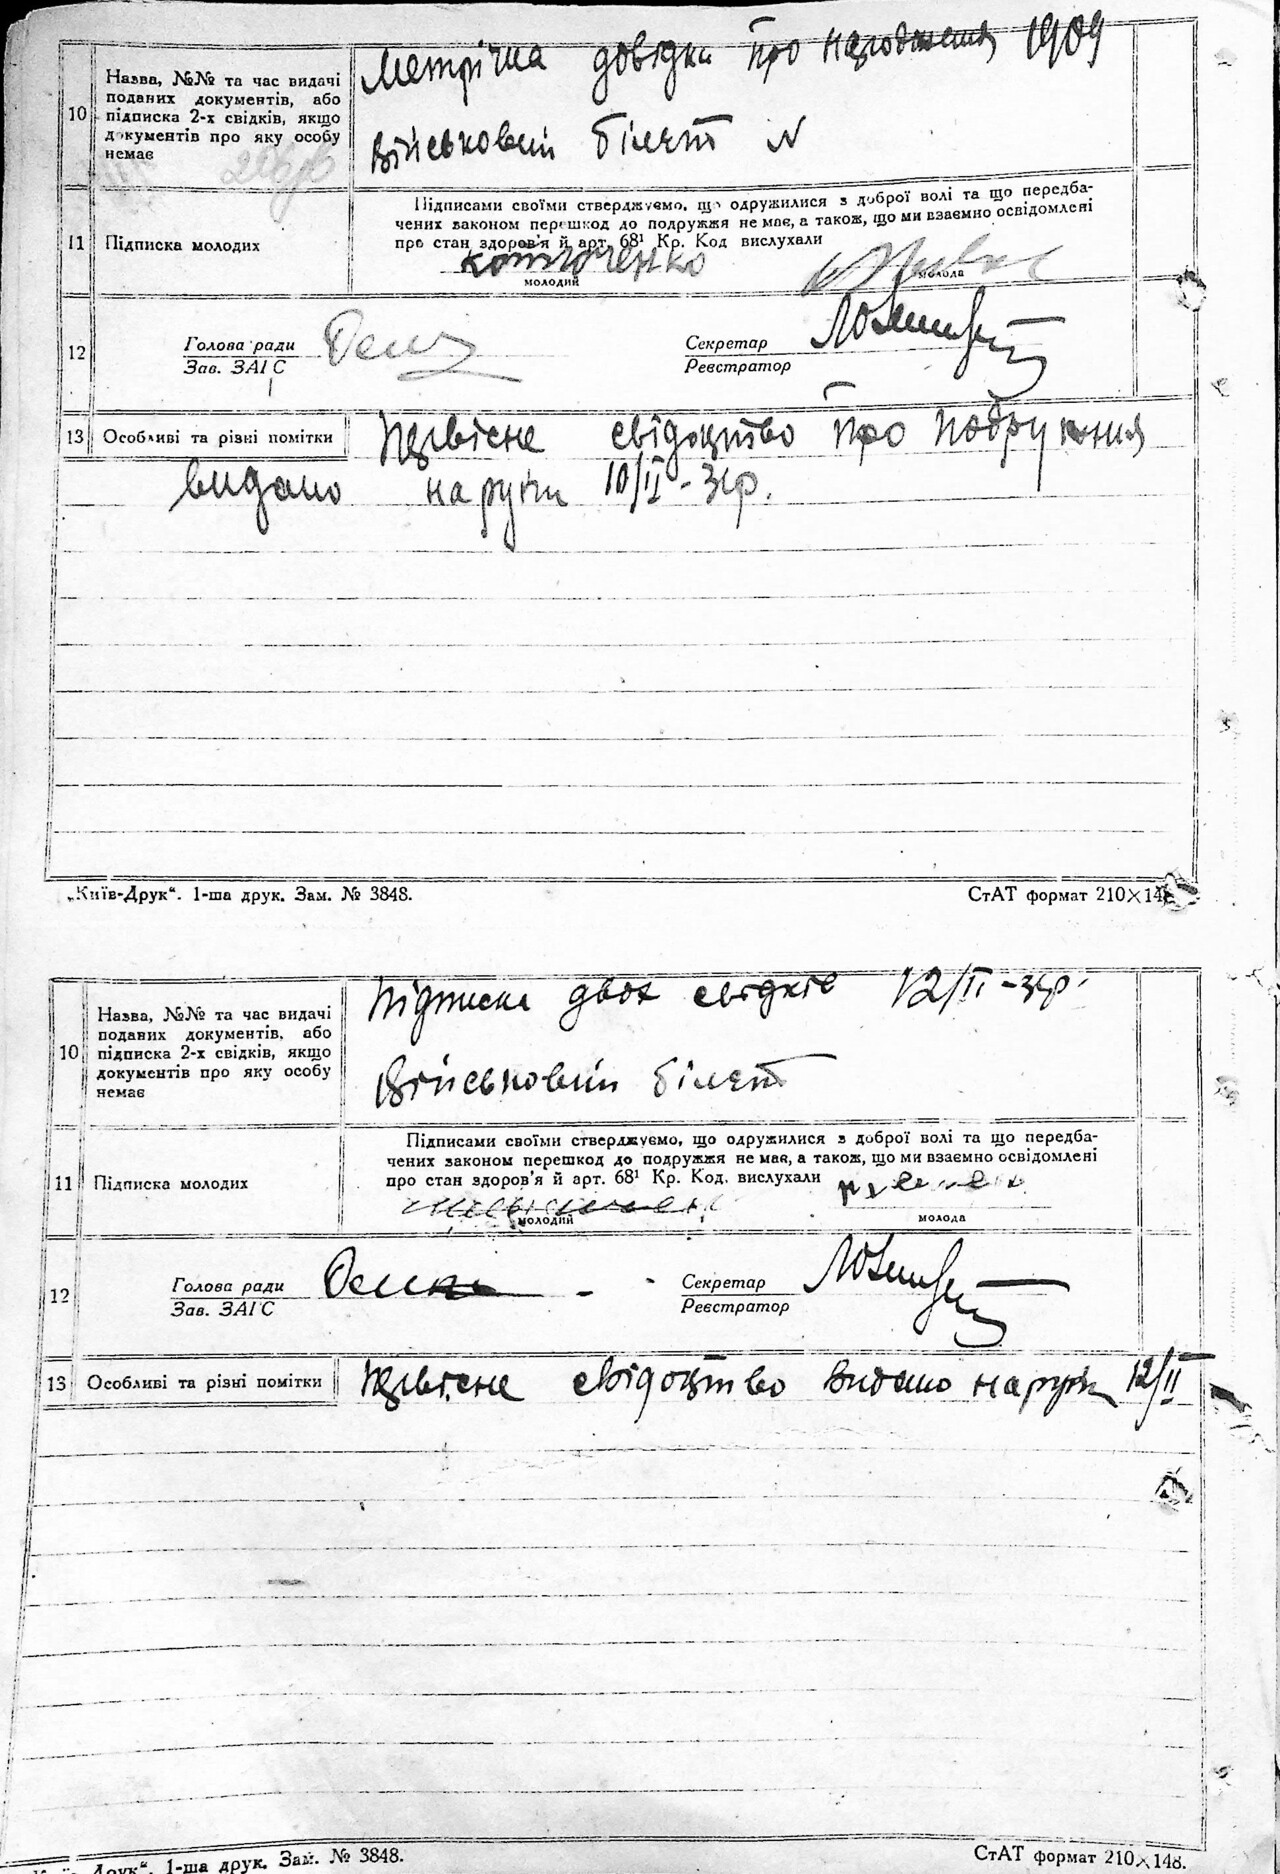 Метрічна довідка про народження 1909
10
Назва, №№ та час видачі
поданих документів, або
підписка 2-х свідків, якщо
документів про яку особу
немає
Військовий білет N
11
Підписка молодих
Підписами своїми стверджуємо, що одружилися з доброї волі та що передба-
чених законом перешкод до подружжя не має, а також, що ми взаємно освідомлені
про стан здоров'я й арт. 68¹ Кр. Код вислухали
молодий
молода
12
Голова ради
Зав. ЗАГС
Секретар
Реєстратор
13
Особливі та різні помітки
Первісне свідоцтво про подруження
видано на руки 10/II-34р.
„Київ-Друк“. 1-ша друк. Зам. № 3848.
СтАТ формат 210×148
Підписка двох свідків 12/II-34р.
10
Назва, №№ та час видачі
поданих документів, або
підписка 2-х свідків, якщо
документів про яку особу
немає
Військовий білет
11
Підписка молодих
Підписами своїми стверджуємо, що одружилися з доброї волі та що передба-
чених законом перешкод до подружжя не має, а також, що ми взаємно освідомлені
про стан здоров'я й арт. 68¹ Кр. Код. вислухали
молодий
молода
12
Голова ради
Зав. ЗАГС
Секретар
Реєстратор
13
Особливі та різні помітки
Первісне свідоцтво видано на руки 12/II
Друк“. 1-ша друк. Зам. № 3848.
СтАТ формат 210×148.